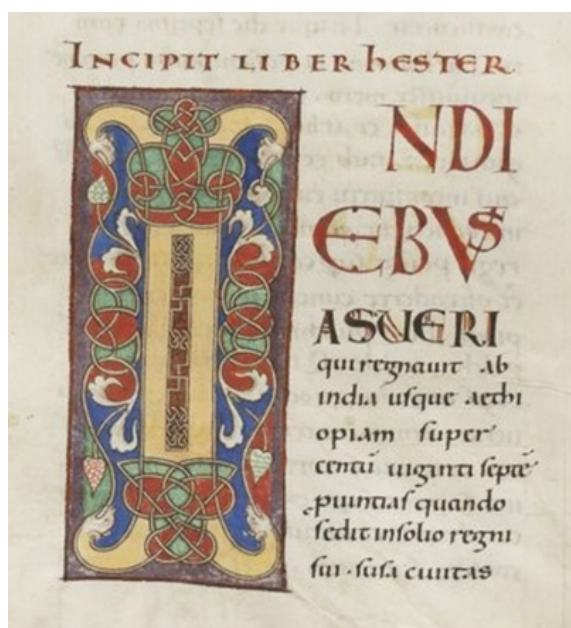 INCIPIT LIBER hESTER
INDI
EBUS
ASUERI
qui regnauit ab
india usque aethi
opiam super
centū uiginti septē
ꝓuintias quando
sedit in solio regni
sui · susa ciuitas